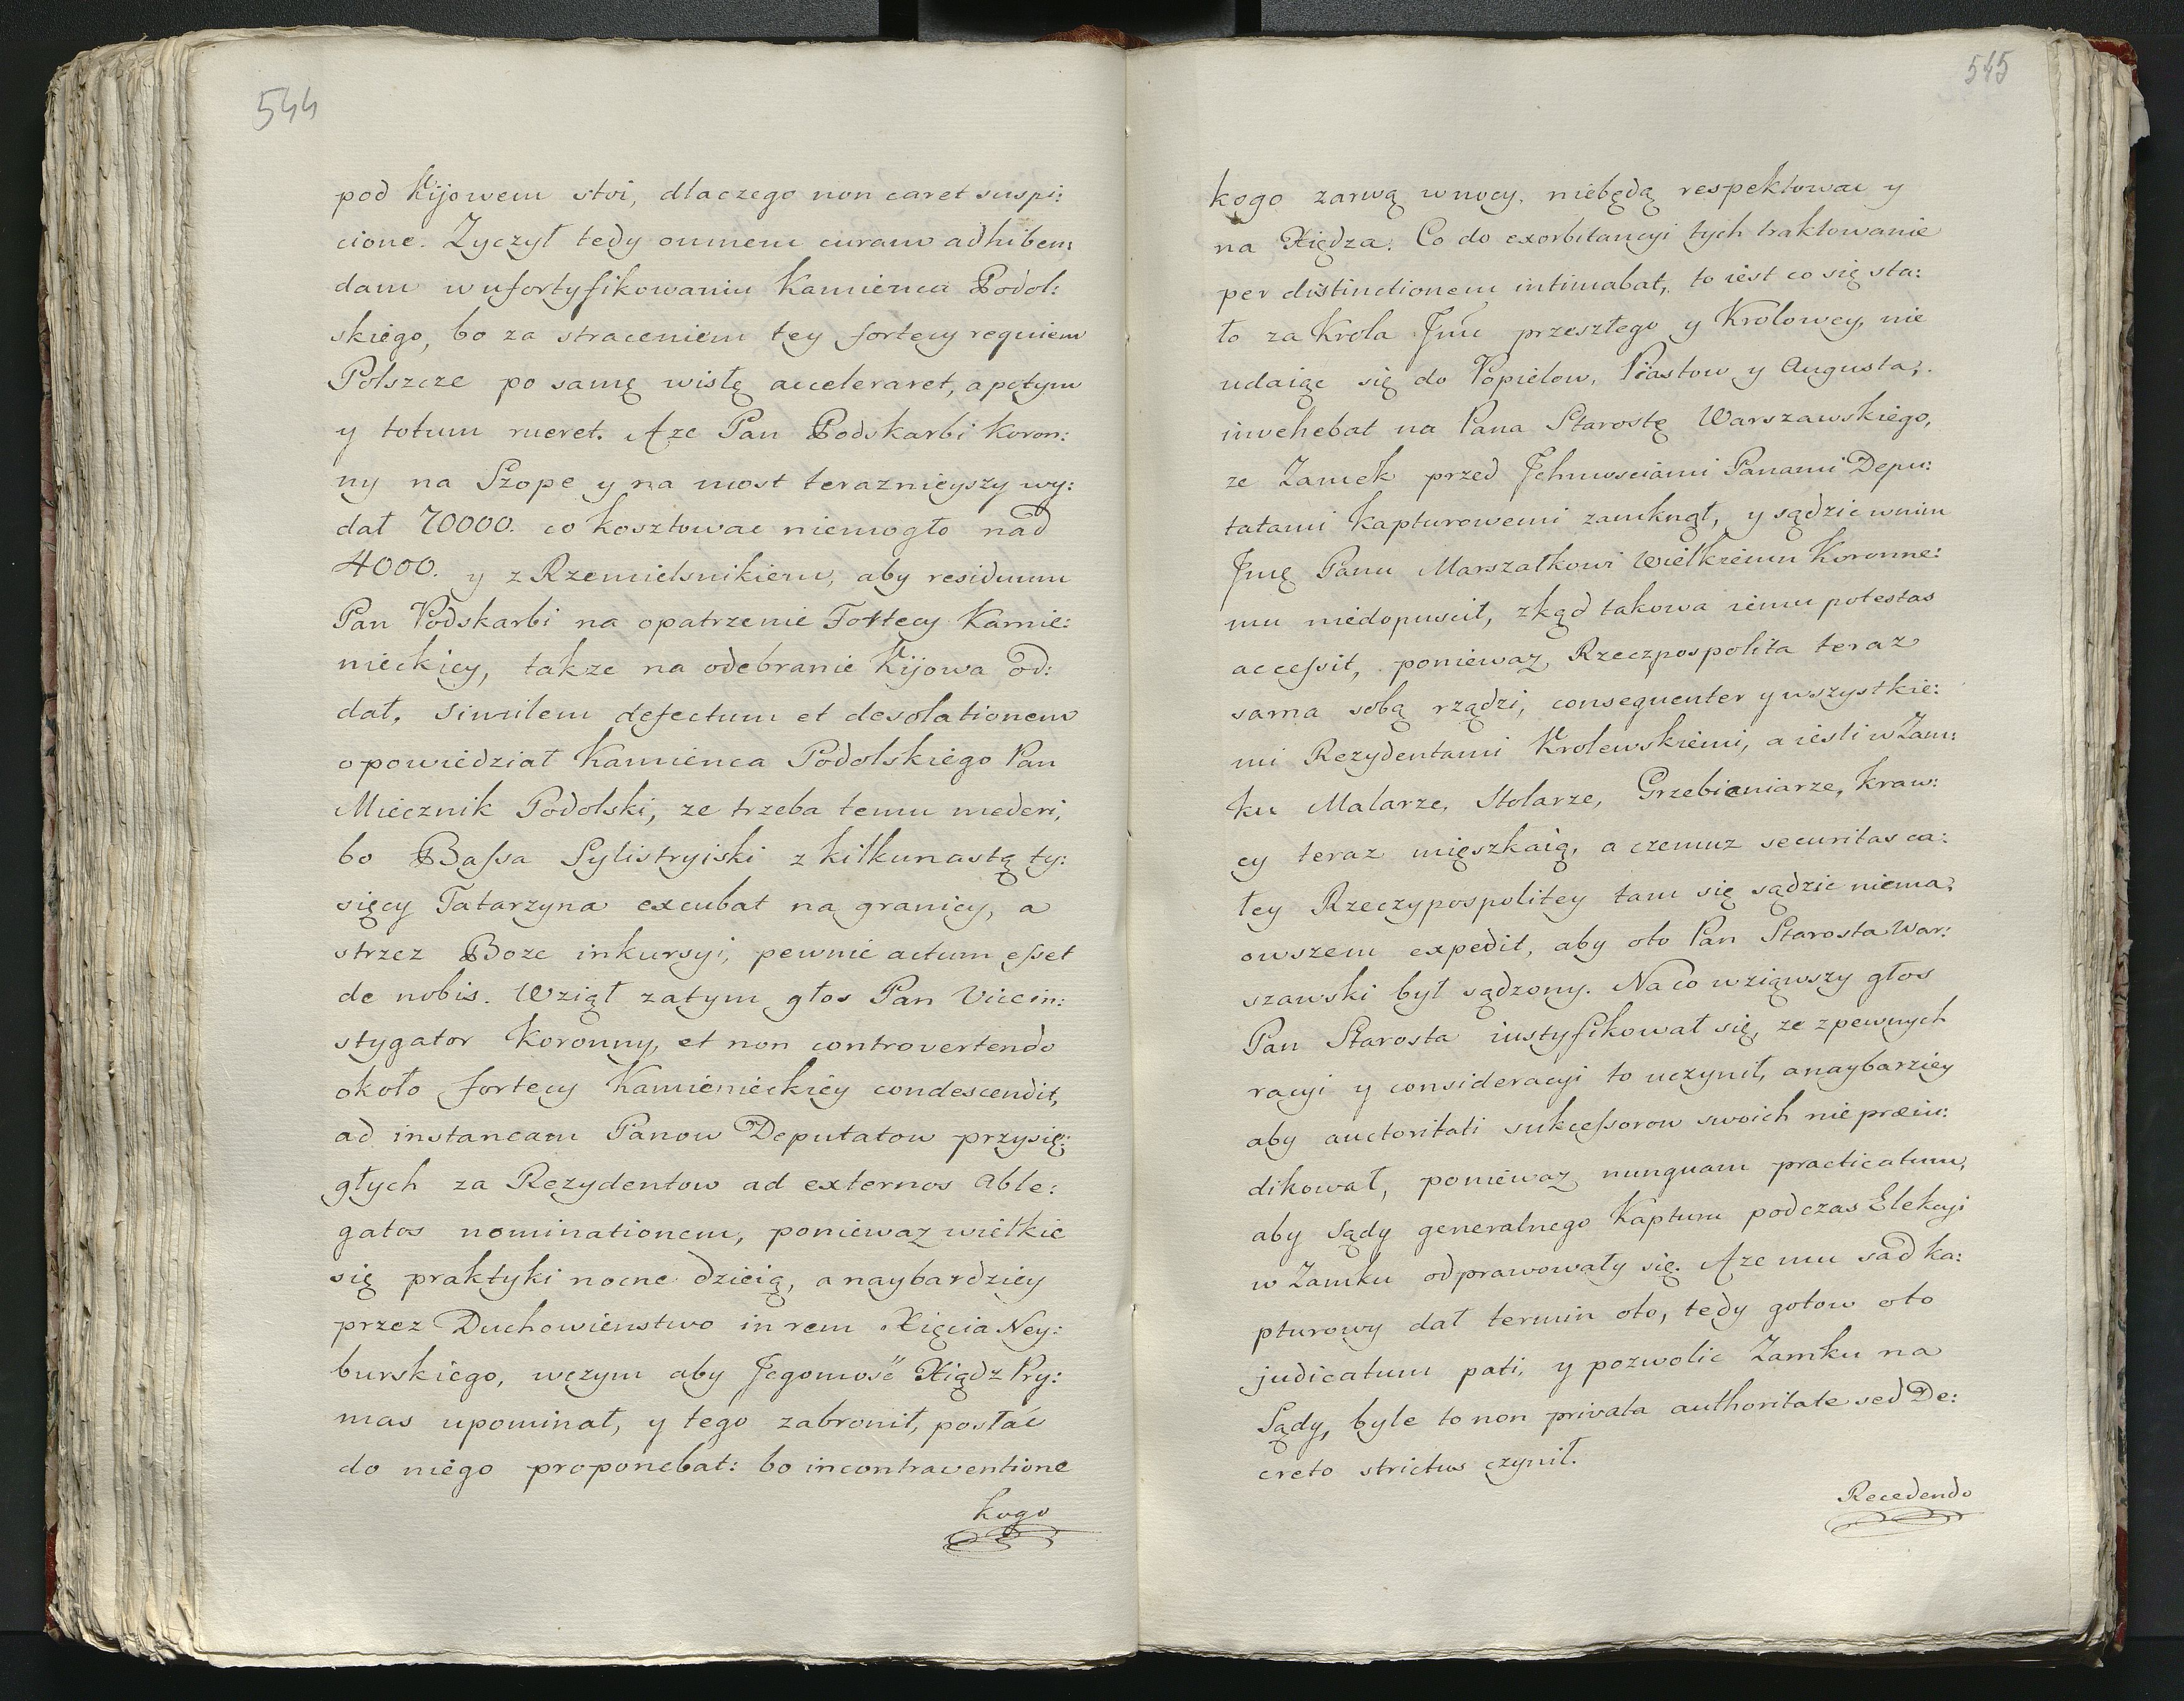 544
pod Kijowem stoi, dlaczego non caret suspi:
cione. Zyczył tedy omnem curam adhiben:
dam w ufortyfikowaniu Kamienca Podol:
skiego, bo za straceniem tey fortecy requiem
Polszcze po samę wisłę acceleraret, a potym
y totum rueret. A ze Pan Podskarbi Koron:
ny na Szope y na most teraznieyszy wy:
dał 70000. co kosztowac niemogło nad
4000. y z Rzemieslnikiem, aby residuum
Pan Podskarbi na opatrzenie Fortecy Kamie:
nieckiey, takze na odebranie Kijowa od:
dał. Similem defectum et desolationem
opowiedział Kamienca Podolskiego Pan
Miecznik Podolski, ze trzeba temu mederi,
bo Baſsa Sylistryiski z kilkunastą ty:
sięcy Tatarzyna excubat na granicy, a
strzez Boze inkursyi, pewnie actum eſset
de nobis. Wziął zatym głos Pan Vicein:
stygator Koronny, et non controvertendo
około fortecy Kamienieckiey condescendit,
ad instancam Panow Deputatow przysię:
głych za Rezydentow ad externos Able:
gatos nominationem, poniewaz wielkie
się praktyki nocne dzieią, a naybardziey
przez Duchowienstwo in rem Xięcia Ney:
burskiego, wczym aby Jegomość Xiądz Pry:
mas upominał, y tego zabronił, posłać
do niego proponebat: bo incontraventione
kogo
545
kogo zarwą wnocy, niebędą respektowac y
na Xiędza. Co do exorbitancyi tych traktowanie
per distinctionem intimabat, to iest co się sta:
ło za Krola Jmć przeszłego y Krolowey, nie
udaiąc się do Popielow, Piastow y Augusta,
invehebat na Pana Starostę Warszawskiego,
ze Zamek przed Jchmosciami Panami Depu:
tatami kapturowemi zamknął, y sądzic wnim
Jmę Panu Marszałkowi Wielkiemu Koronne:
mu niedopuscił, zkąd takowa iemu potestas
acceſsit, poniewaz Rzeczpospolita teraz
sama sobą rządzi, consequenter y wszystkie:
mi Rezydentami Krolewskiemi, a iesli w Zam:
ku Malarze, Stolarze, Grzebieniarze, Kraw:
cy teraz mięszkaią, a czemuz securitas ca:
łey Rzeczypospolitey tam się sądzic niema,
owszem expedit, aby oto Pan Starosta War:
szawski był sądzony. Na co wziąwszy głos
Pan Starosta iustyfikował się, ze zpewnych
racyi y consideracyi to uczynił, a naybarziey
aby auctoritati sukceſsorow swoich nie præiu:
dikował, poniewaz nunquam practicatum,
aby Sądy generalnego Kapturu podczas Elekcyi
w Zamku odprawowały się. A ze mu sad ka:
pturowy dał termin oto, tedy gotow oto
judicatum pati, y pozwolic Zamku na
Sądy, byle to non privata authoritate sed De:
creto strictus czynił.
Recedendo